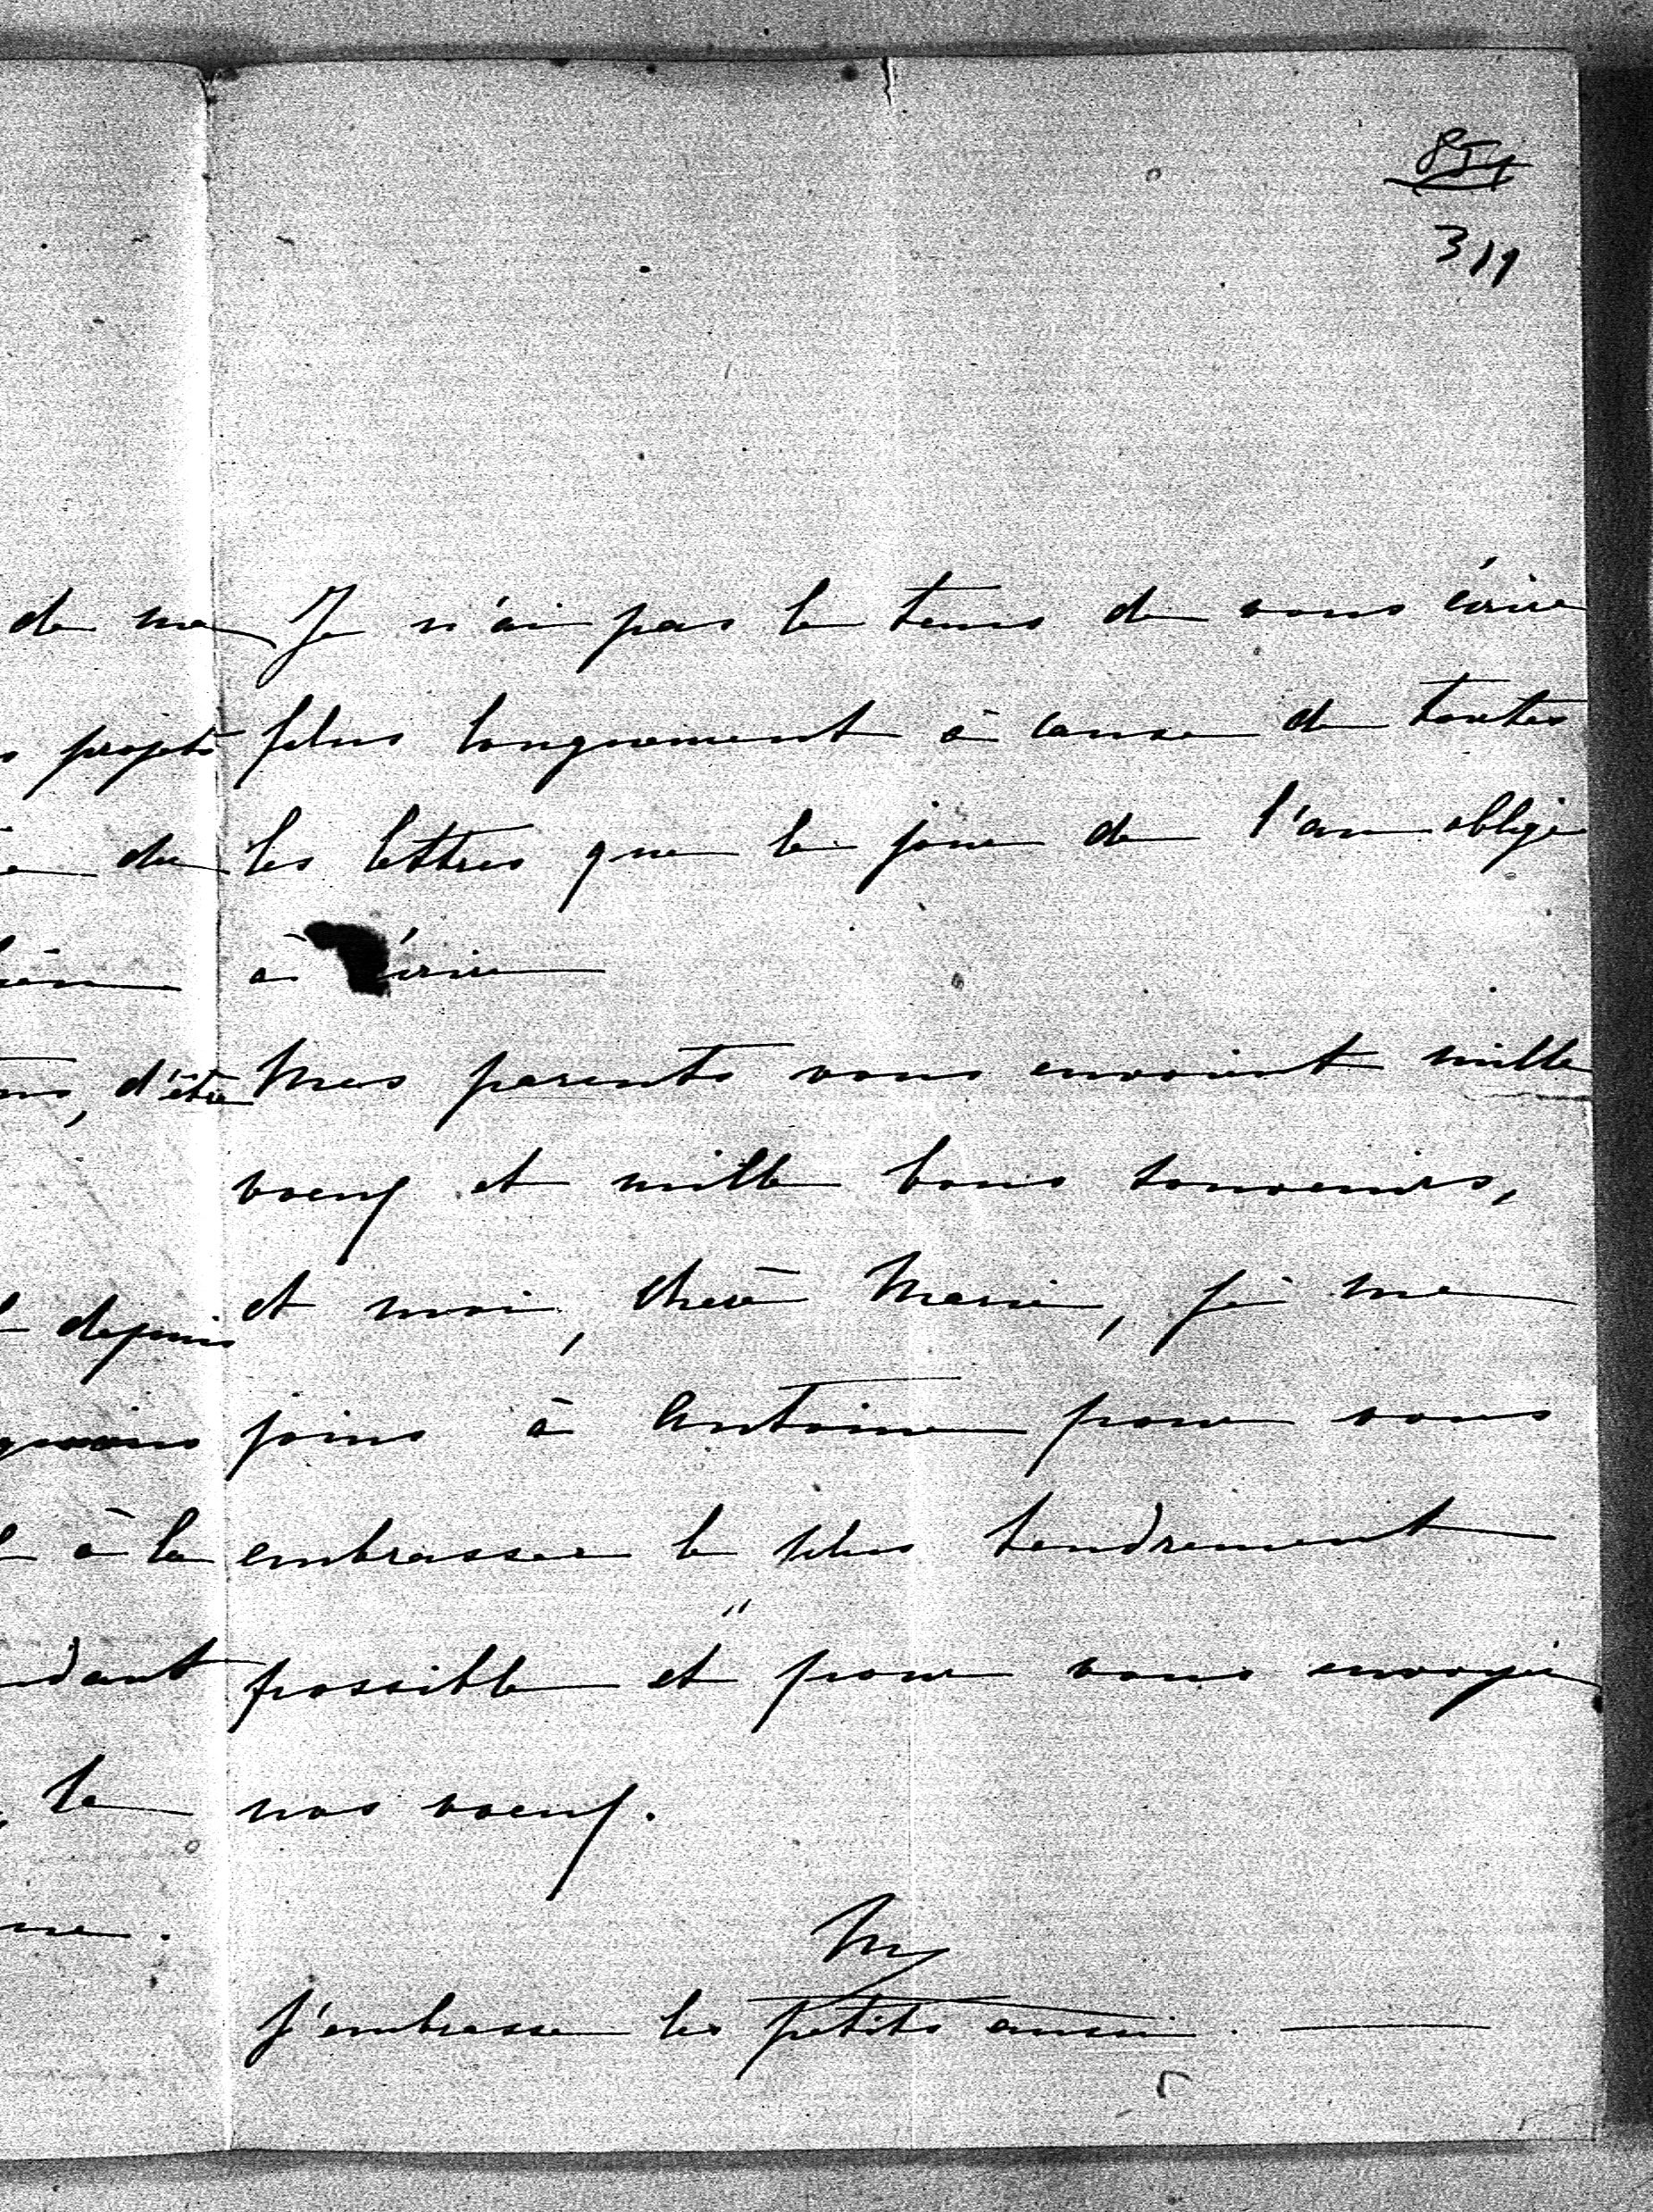 319
de ma
projets
du
d'être
depuis
à la
la
Je n'ai pas le tems de vous écrire
plus longuement à cause de toutes
les lettres que le jour de l'an oblige
à écrire
Mes parents vous envoient mille
voeux et mille bons souvenirs,
et moi, chère Marie, je me
joins à Antoine pour vous
embrasser le plus tendrement
possible et pour vous envoyer
nos voeux.
J'embrasse les petits aussi.